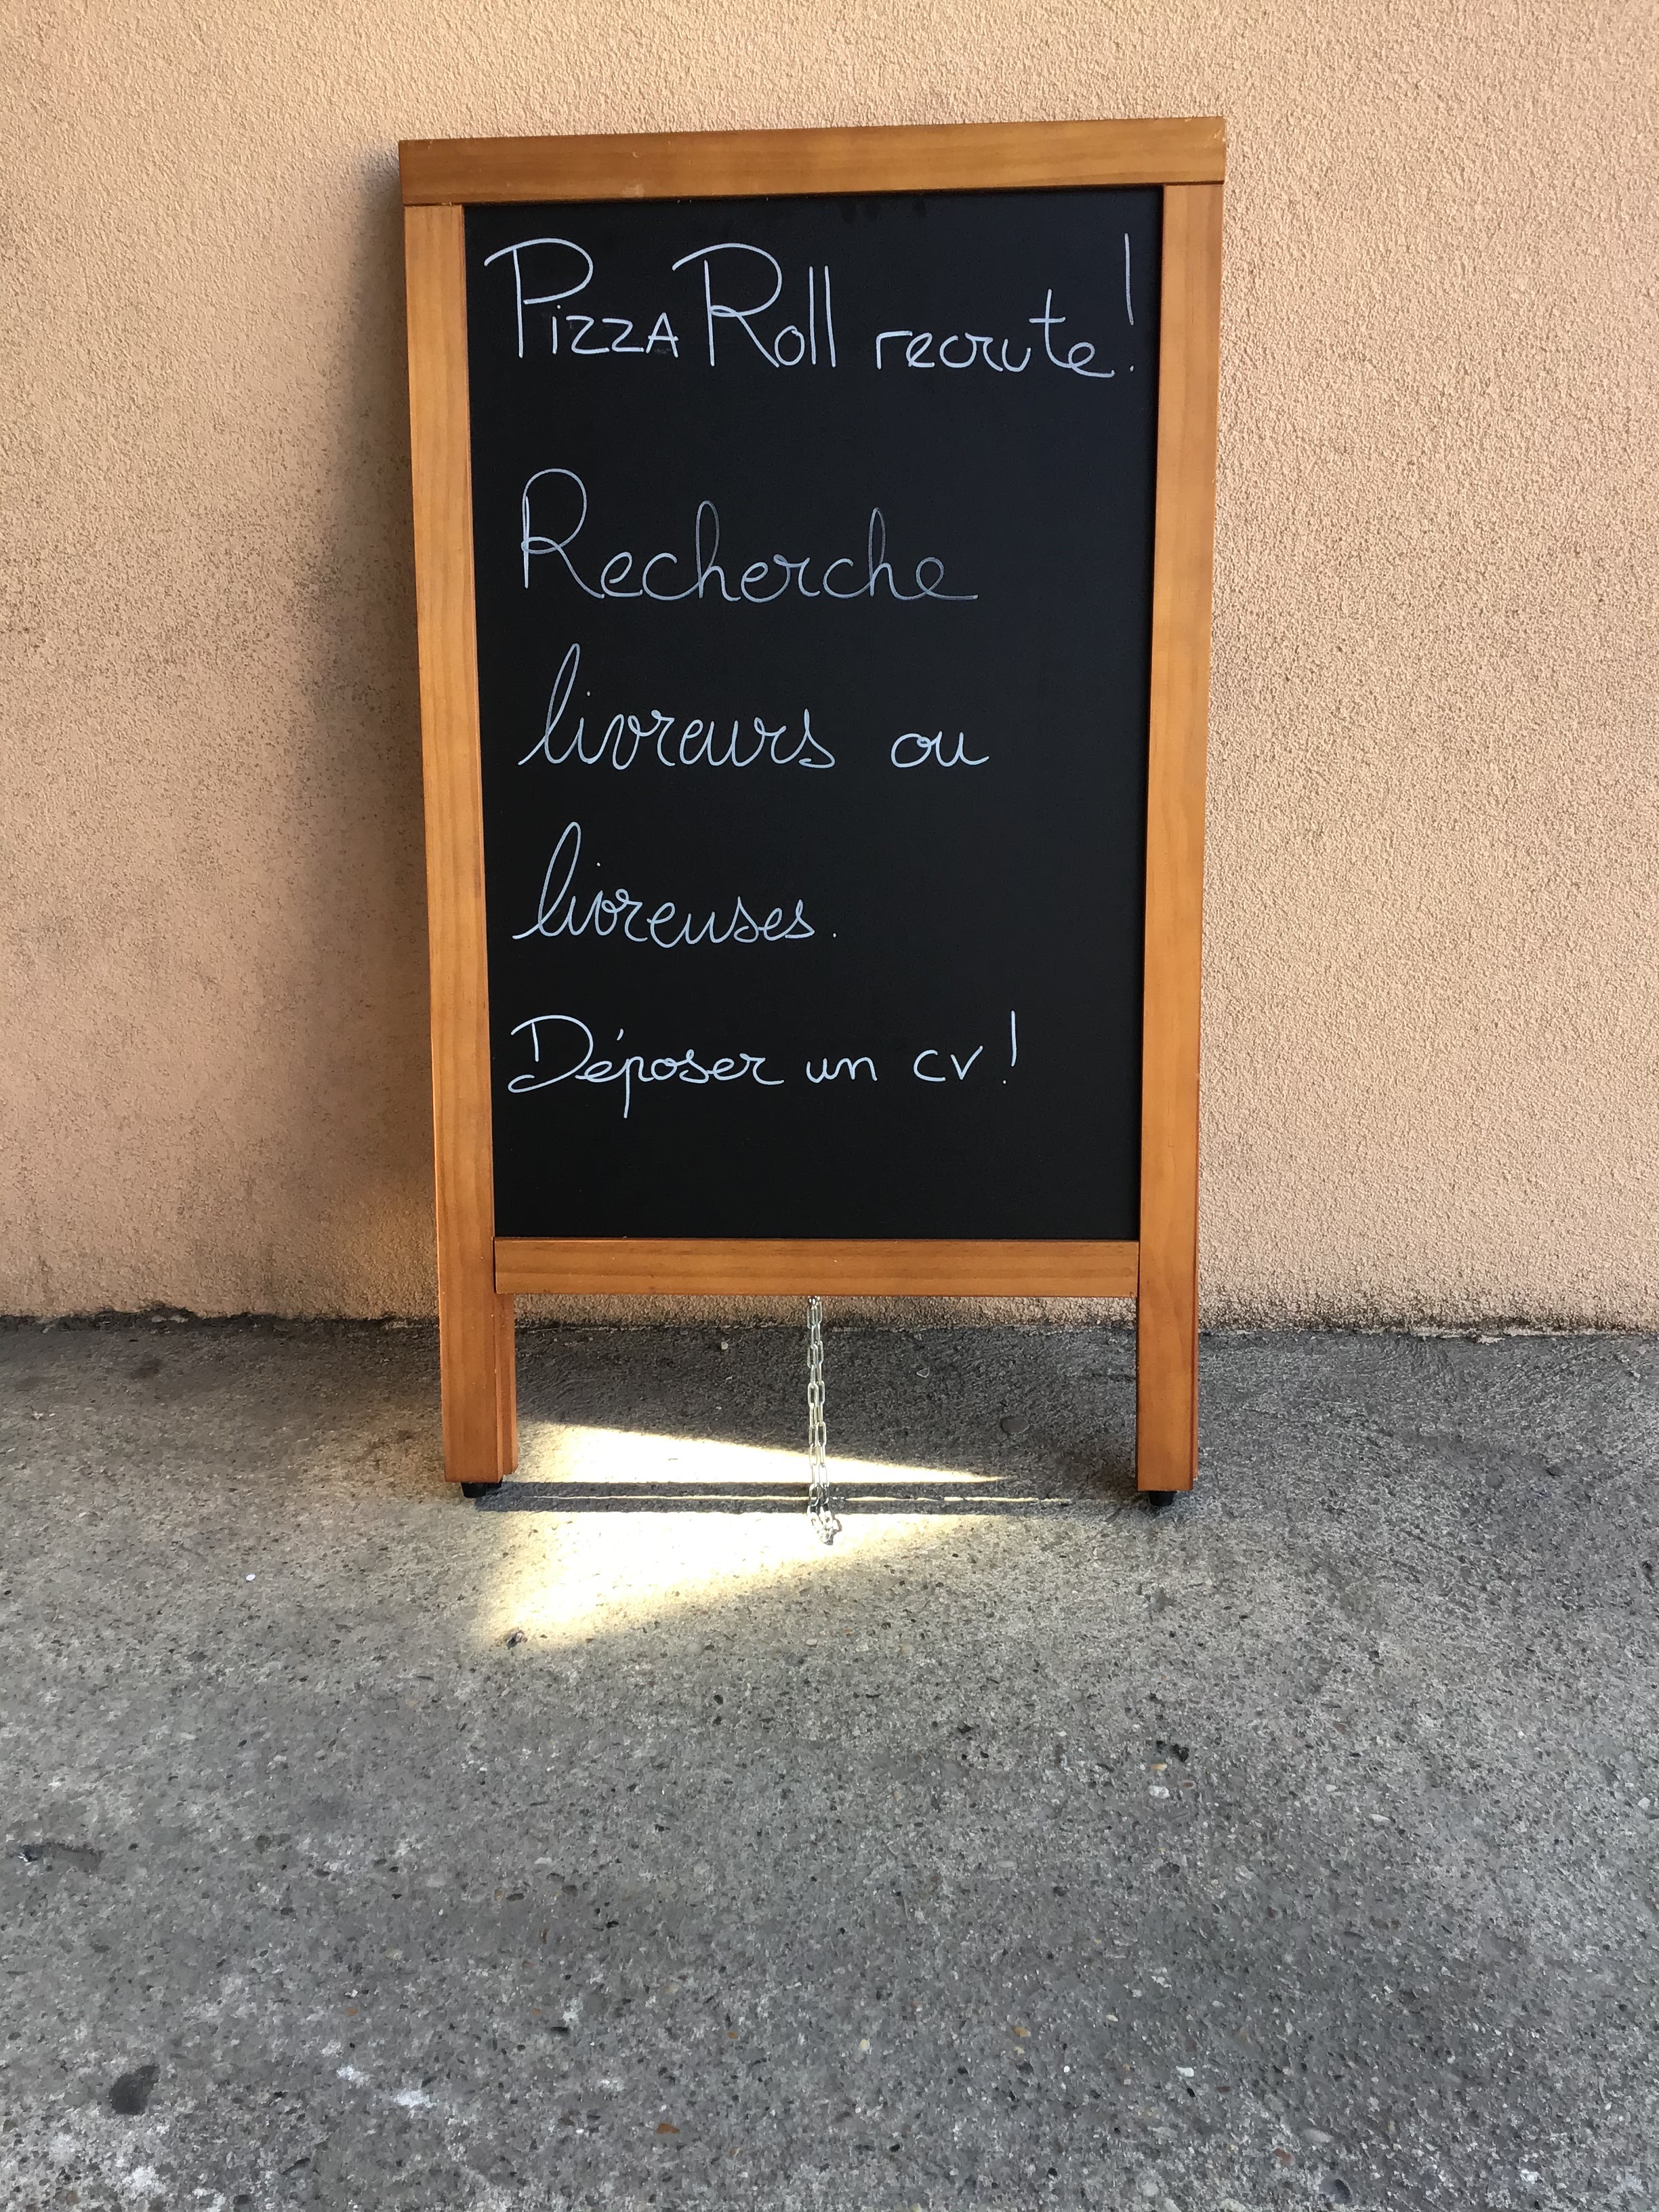 Pizza Roll recrute!
Recherche
livreurs ou
livreuses.
Déposer un cv!